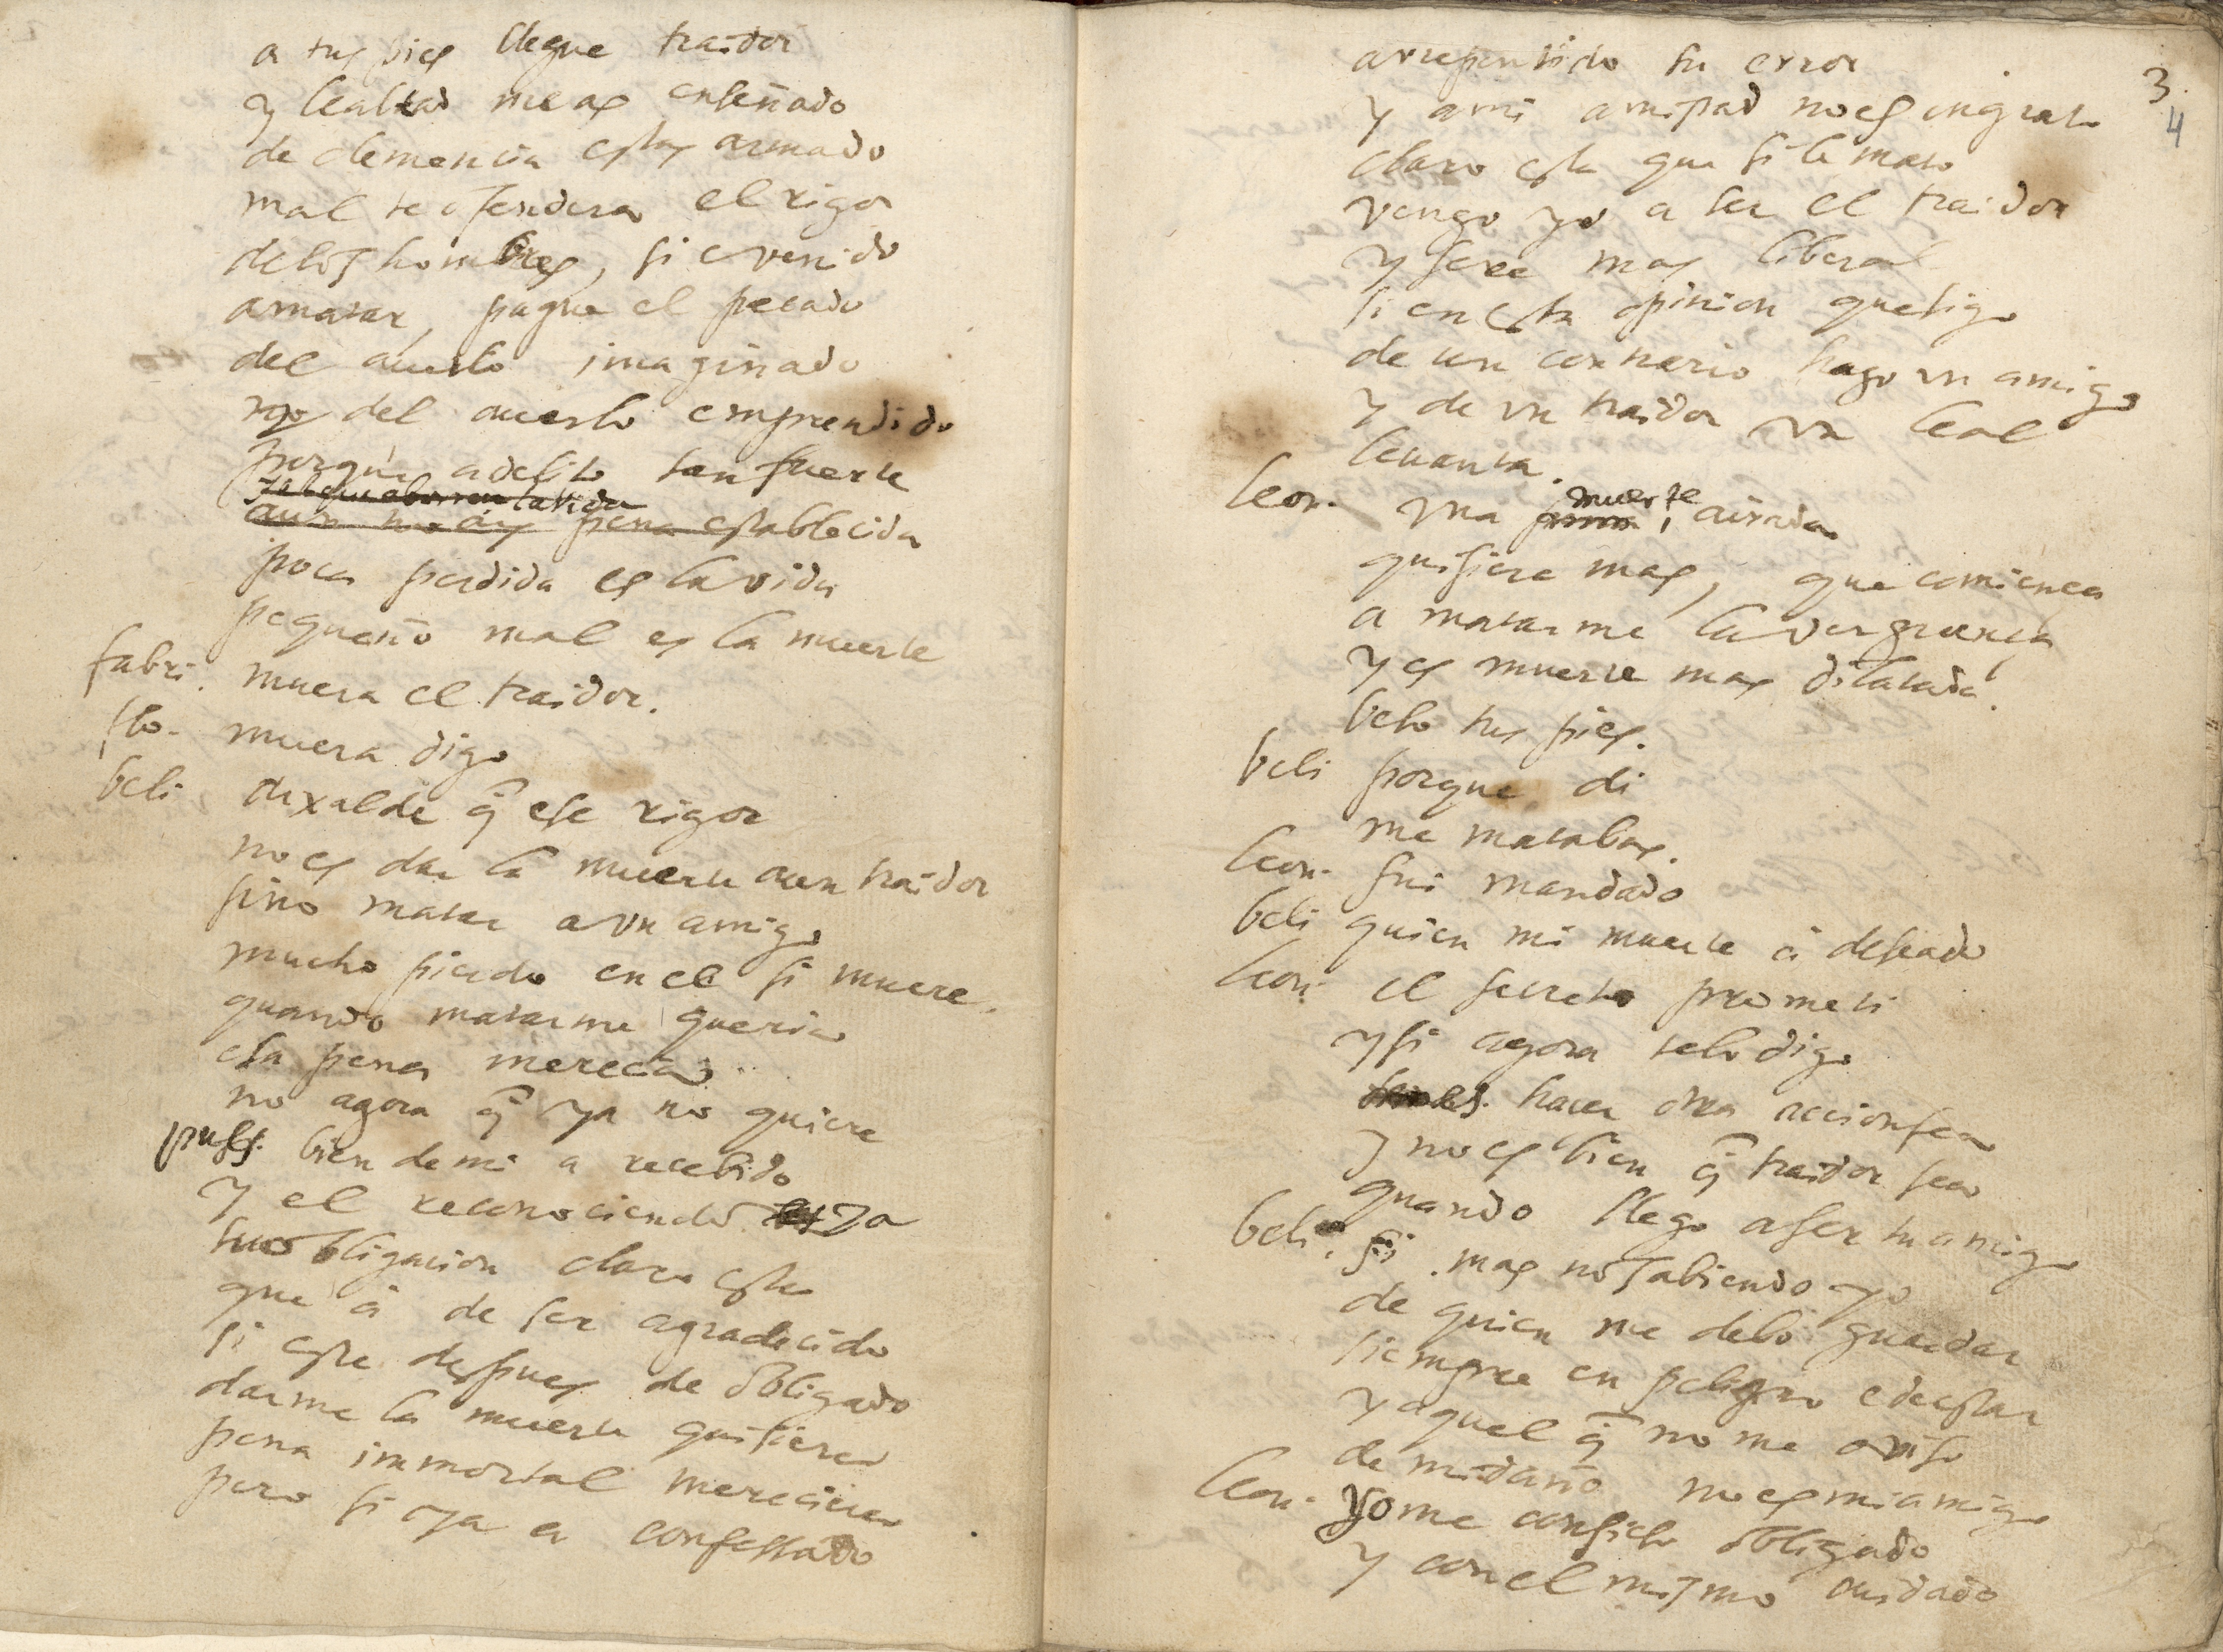 a tus pies llegue traidor
y lealtad me as enseñado
de clemencia estas armado
mal te ofendera el rigor
de los hombres, si e venido
a matar, pague el pecado
del acierto imaginado
y no del acierto emprendido
porque a delito tan fuerte
la vida
aun no ay pena establecida
poca perdida es la vida
pequeño mal es la muerte
fabri. muera el traidor.
flo. muera digo
beli dexalde q̃ ese rigor
no es dar la muerte a un traidor
sino matar a vn amigo
mucho pierdo en el si muere
quando matarme queria
esa pena merecia
no agora q̃ ya no quiere
pues bien de mi a recebido
y el reconociendo ya
su obligacion claro esta
que a de ser agradecido
si este despues de obligado
darme la muerte quisiera
pena immortal mereciera
pero si ya a confessado
3.
4
arrepentido su error
y a mi amistad no es ingrato
claro esta que si le mato
vengo yo a ser el traidor
y sere mas liberal
si en esta opinion que sigo
de un contrario hago vn amigo
y de vn traidor vn leal
leuanta.
muerte
leon. vna airada
quisiera mas, que comiença
a matarme la verguença
y es muerte mas dilatada.
beso tus pies.
beli porque di
me matabas.
leon. fui mandado
beli quien mi muerte a deseado
leon. el secreto prometi
y si agora te lo digo
hacer otra accion fea
y no es bien q̃ traidor sea
quando llego a ser tu amigo
beli. si mas no sabiendo yo
de quien me debo guardar
siempre en peligro e de estar
y aquel q̃ no me aviso
de mi daño no es mi amigo
leon. yo me confieso obligado
y con el mismo cuidado